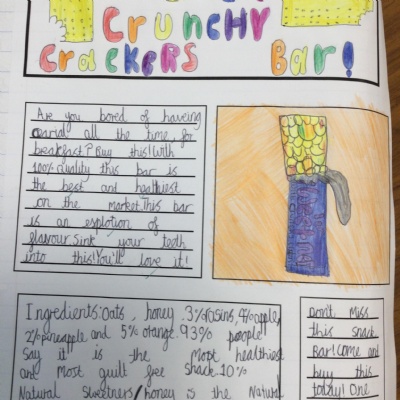 Crunchy
Crackers Bar!
Are you bored of haveing
cearial all the time, for
breakfast? Buy this! With
100% quality this bar is
the best and healthiest
on the market. This bar
is an esplotion of
flavour. Sink your teeth
into this! You'll love it!
Ingredients: Oats, honey .3% rosins, 4% apple,
2% pineapple and 5% orange. 93% poeple
say it is the most healthiest
and most guilt free snack. 10%
Natural sweetners/honey is the Natural
Don't Miss
this snack
Bar! Come and
buy this
today! One